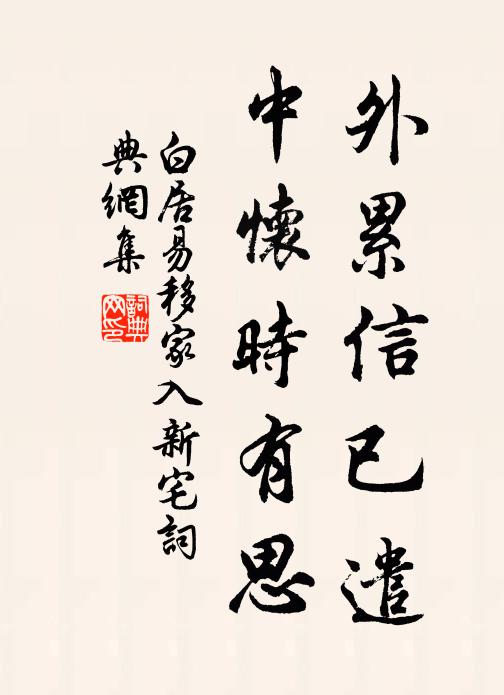 外累信已遣
中懷時有思
白居易移家入新宅詞
典網集
詞典
网印